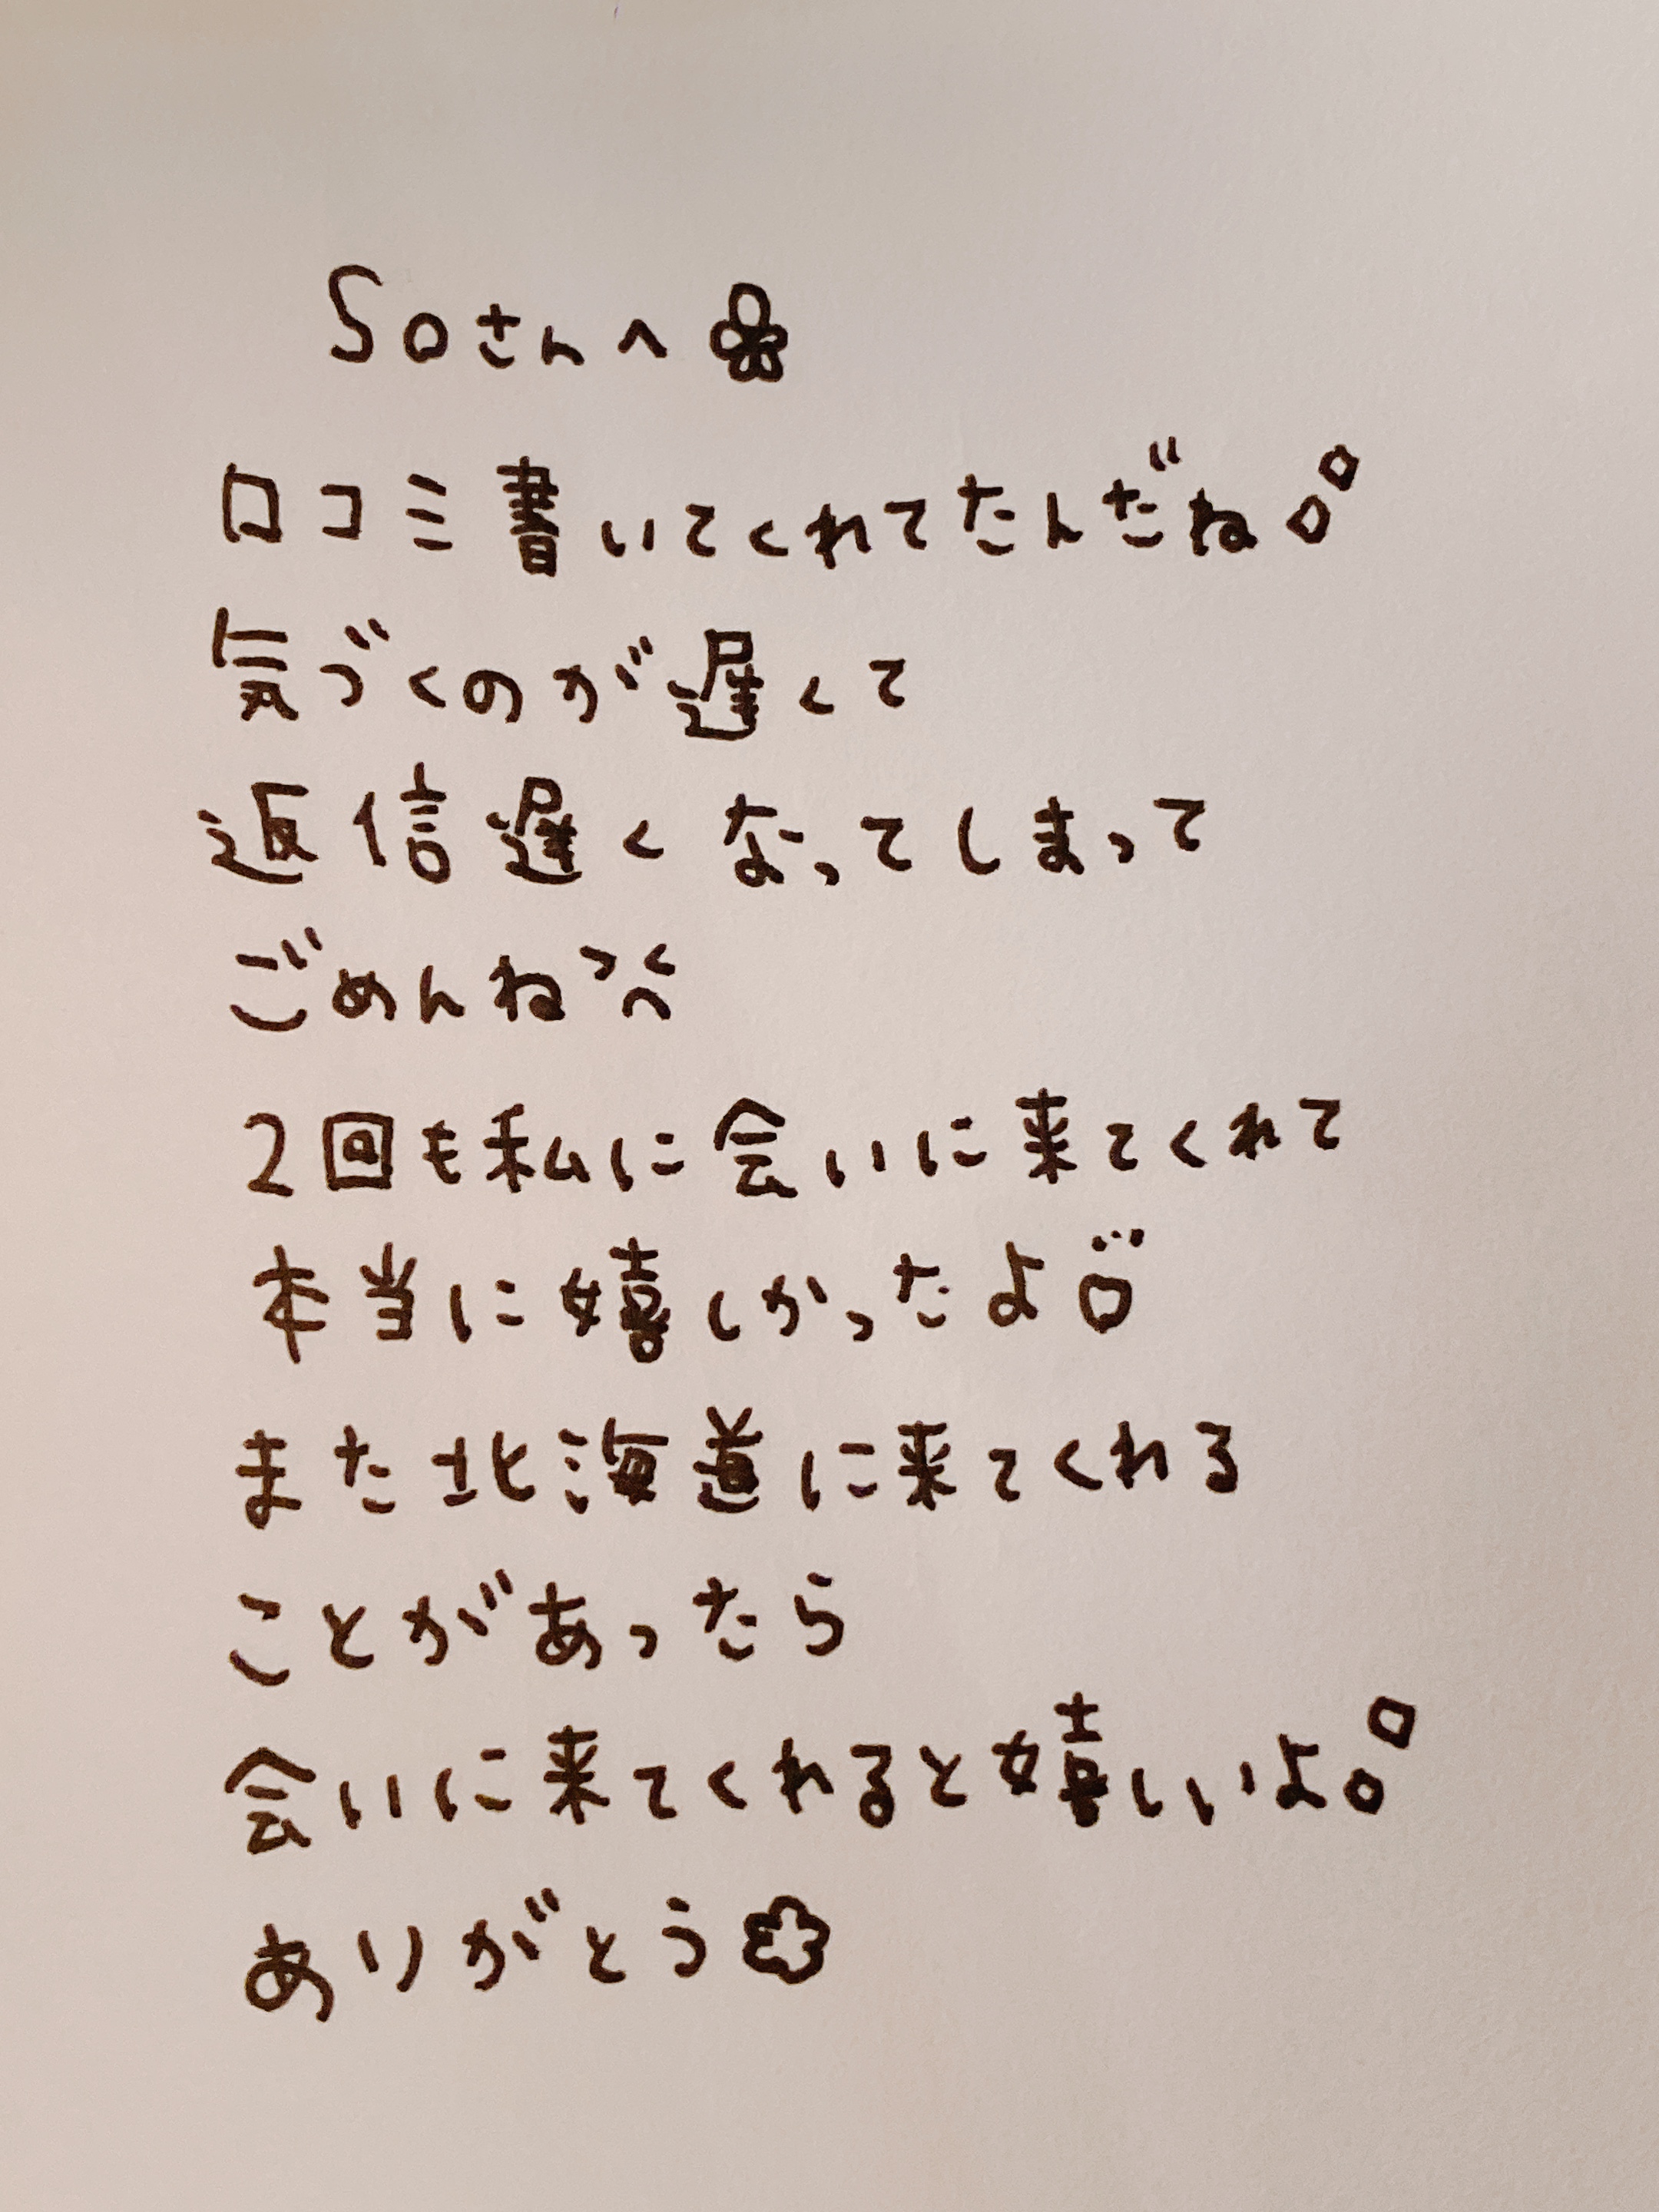 Soさんへ
口コミ書いてくれてたんだね
気づくのが遅くて
返信遅くなってしまって
ごめんね
2回も私に会いに来てくれて
本当に嬉しかったよ
また北海道に来てくれる
ことがあったら
会いに来てくれると嬉しいよ
ありがとう